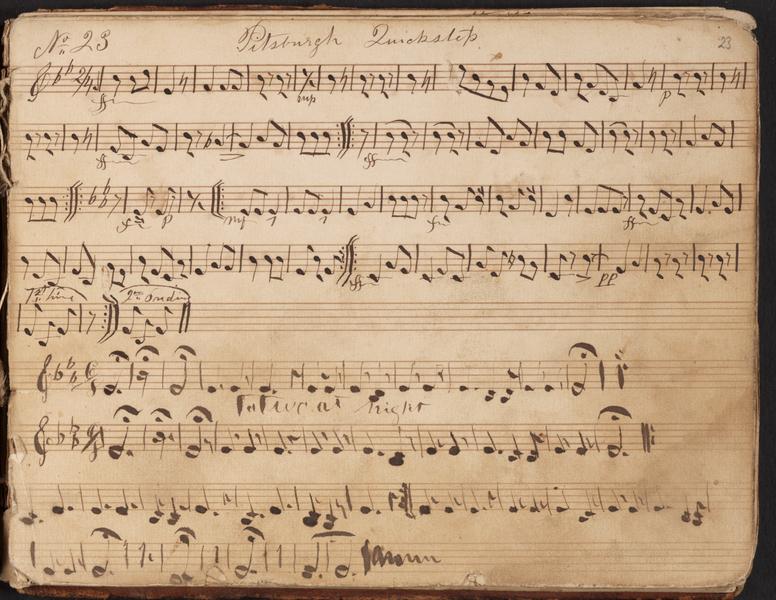 No. 23 Pitsburgh Quickstep. 23
2/4 ff mp p
ff ff
ff p mf ff
ff pp
1st time 2nd
Tatwo at Night